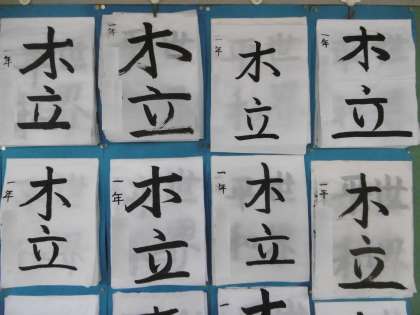 木立
一年
木立
一年
木立
一年
木立
一年
木立
一年
木立
一年
木立
一年
木立
一年